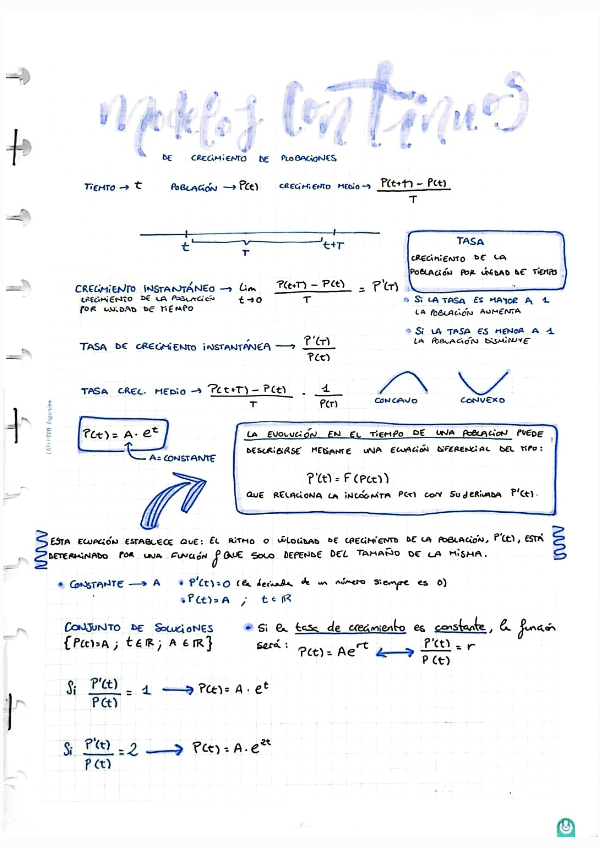 Modelos Continuos
DE CRECIMIENTO DE POBLACIONES
TIEMPO → t POBLACIÓN → P(t) CRECIMIENTO MEDIO → P(t+T) - P(t) / T
t T t+T
TASA
CRECIMIENTO DE LA
POBLACIÓN POR UNIDAD DE TIEMPO
CRECIMIENTO INSTANTÁNEO → Lim t→0 P(t+T) - P(t) / T = P'(T)
CRECIMIENTO DE LA POBLACIÓN
POR UNIDAD DE TIEMPO
• SI LA TASA ES MAYOR A 1
LA POBLACIÓN AUMENTA
• SI LA TASA ES MENOR A 1
LA POBLACIÓN DISMINUYE
TASA DE CRECIMIENTO INSTANTÁNEA → P'(T) / P(t)
TASA CREC. MEDIO → P(t+T) - P(t) / T · 1 / P(T)
CONCAVO CONVEXO
P(t) = A · e^t
A = CONSTANTE
LA EVOLUCIÓN EN EL TIEMPO DE UNA POBLACIÓN PUEDE
DESCRIBIRSE MEDIANTE UNA ECUACIÓN DIFERENCIAL DEL TIPO:
P'(t) = F(P(t))
QUE RELACIONA LA INCÓGNITA P(t) CON SU DERIVADA P'(t).
ESTA ECUACIÓN ESTABLECE QUE: EL RITMO O VELOCIDAD DE CRECIMIENTO DE LA POBLACIÓN, P'(t), ESTÁ
DETERMINADO POR UNA FUNCIÓN f QUE SOLO DEPENDE DEL TAMAÑO DE LA MISMA.
• CONSTANTE → A • P'(t)=0 (la derivada de un número siempre es 0)
• P(t)=A ; t∈ℝ
CONJUNTO DE SOLUCIONES
{P(t)=A ; t∈ℝ ; A∈ℝ}
• Si la tasa de crecimiento es constante, la función
será: P(t) = Ae^rt ↔ P'(t) / P(t) = r
Si P'(t) / P(t) = 1 → P(t) = A · e^t
Si P'(t) / P(t) = 2 → P(t) = A · e^2t